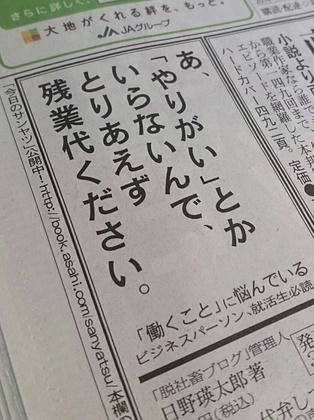 さらに詳しく、
大地がくれる絆を、もっと。
JAグループ
小説より
職業作家
から第一
エピソード
ハード・カバー
四九二頁。
定価
あ、
「やりがい」とか
いらないんで、
とりあえず
残業代ください。
「働くこと」に悩んでいる
ビジネスパーソン、就活生必読
「脱社畜ブログ」管理人
日野瑛太郎著
(税込)
「今日のサンヤツ」公開中！http://book.asahi.com/sanyatsu/本欄